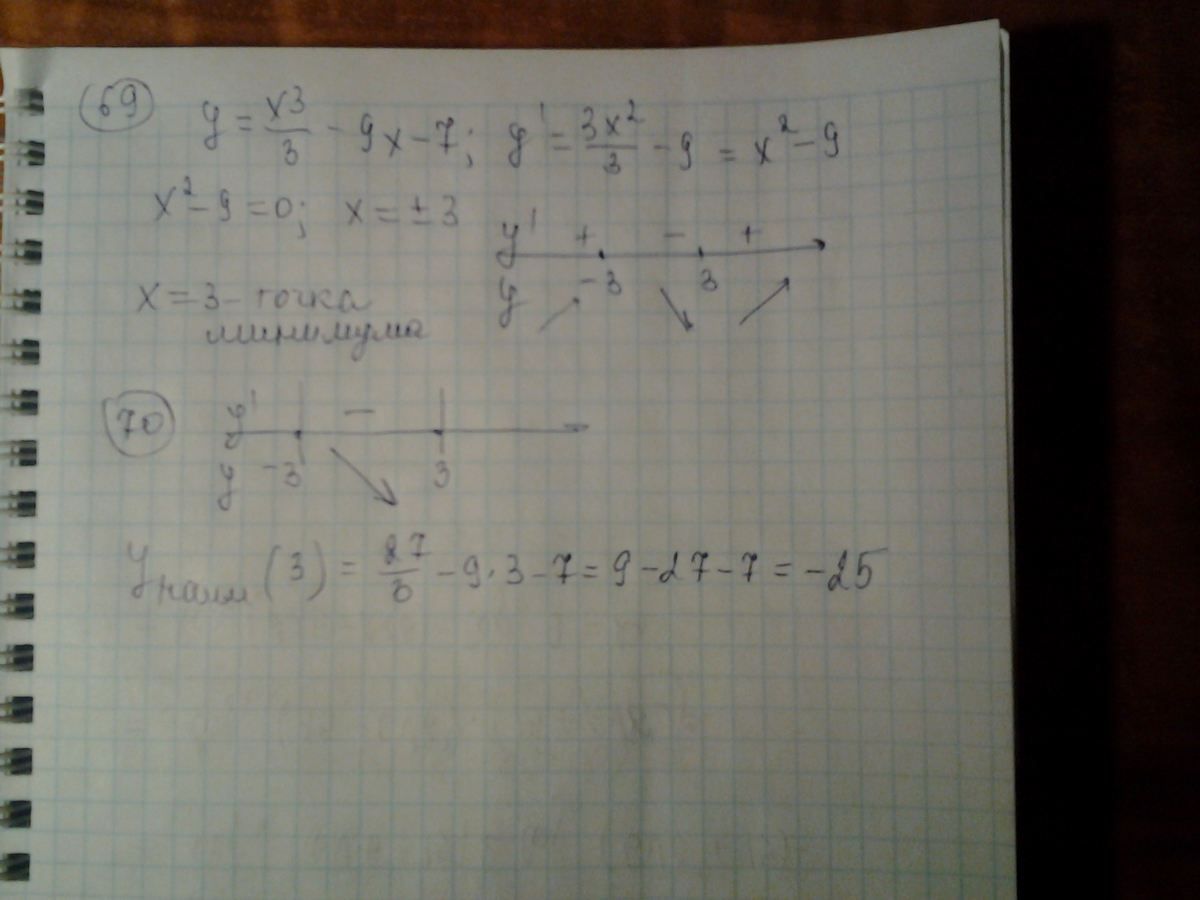 69 y = x3/3 - 9x - 7; y' = 3x²/3 - 9 = x² - 9
x² - 9 = 0; x = ± 3
y' + - +
-3 3
y
x = 3 - точка
минимума
70 y' -
y -3 3
Yнаим (3) = 27/3 - 9·3 - 7 = 9 - 27 - 7 = -25